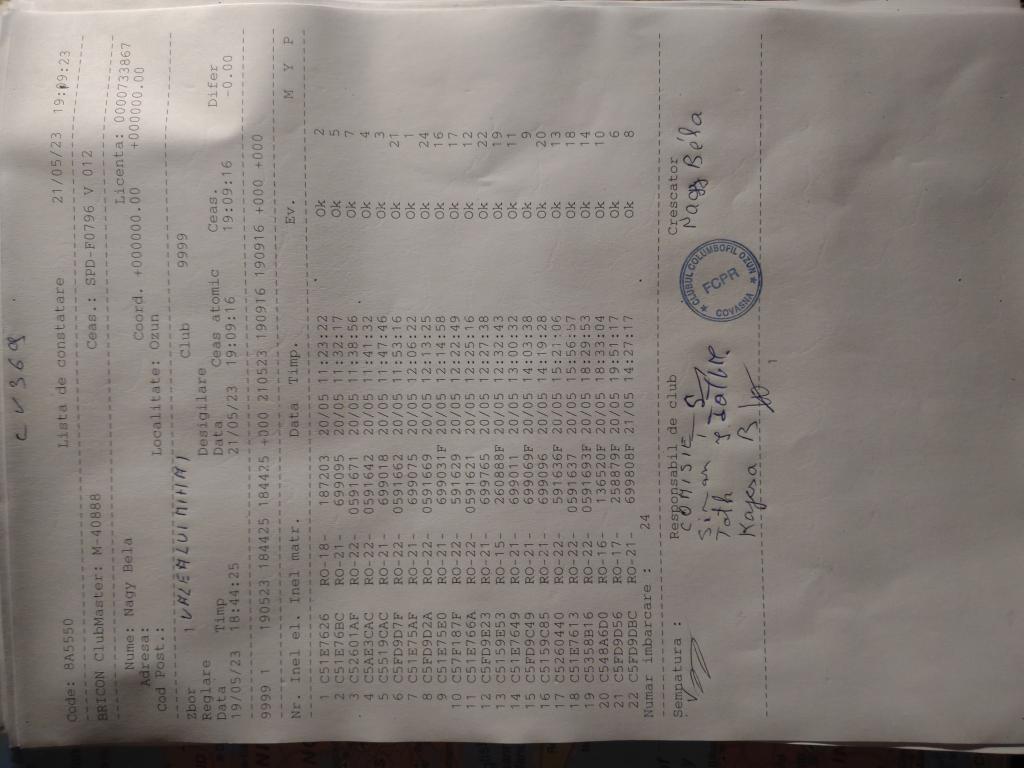 CV 369
Lista de constatare 21/05/23 19:09:23
Code: 8A5550
Ceas.: SPD-F0796 V 012
BRICON ClubMaster: M-40888
Nume: Nagy Bela Licenta: 0000733867
Adresa: Coord. +000000.00 +000000.00
Cod Post.: Localitate: Ozun
Zbor 1 VALEALUI MIHAI Club 9999
Reglare Desigilare
Data Timp Data Ceas atomic Ceas. Difer
19/05/23 18:44:25 21/05/23 19:09:16 19:09:16 -0.00
9999 1 190523 184425 184425 +000 210523 190916 190916 +000 +000
Nr. Inel el. Inel matr. Data Timp. Ev. M Y P
1 C51E7626 RO-18- 187203 20/05 11:23:22 Ok 2
2 C51E76BC RO-21- 699095 20/05 11:32:17 Ok 5
3 C52601AF RO-22- 0591671 20/05 11:38:56 Ok 7
4 C5AE3CAC RO-22- 0591642 20/05 11:41:32 Ok 4
5 C5519CAC RO-21- 699018 20/05 11:47:46 Ok 3
6 C5FD9D7F RO-22- 0591662 20/05 11:53:16 Ok 21
7 C51E75AF RO-21- 699075 20/05 12:06:22 Ok 1
8 C5FD9D2A RO-22- 0591669 20/05 12:13:25 Ok 24
9 C51E75E0 RO-21- 699031F 20/05 12:14:58 Ok 16
10 C57F187F RO-22- 591629 20/05 12:22:49 Ok 17
11 C51E766A RO-22- 0591621 20/05 12:25:16 Ok 12
12 C5FD9E23 RO-21- 699765 20/05 12:27:38 Ok 22
13 C5159E53 RO-15- 260888F 20/05 12:32:43 Ok 19
14 C51E7649 RO-21- 699011 20/05 13:00:32 Ok 11
15 C5FD9C49 RO-21- 699069F 20/05 14:03:38 Ok 9
16 C5159C85 RO-21- 699096 20/05 14:19:28 Ok 20
17 C5260440 RO-22- 591636F 20/05 15:21:06 Ok 13
18 C51E7613 RO-22- 0591637 20/05 15:56:57 Ok 18
19 C5358B16 RO-22- 0591691F 20/05 18:29:53 Ok 14
20 C548A6D0 RO-16- 136520F 20/05 18:33:04 Ok 10
21 C5FD9D56 RO-17- 258878F 20/05 19:51:17 Ok 6
22 C5FD9DBC RO-21- 699808F 21/05 14:27:17 Ok 8
Numar imbarcare : 24
Semnatura : Responsabil de club Crescator
COMISIE Nagy Béla
CLUBUL COLUMBOFIL OZUN
FCPR
COVASNA